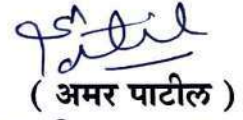 ( अमर पाटील )